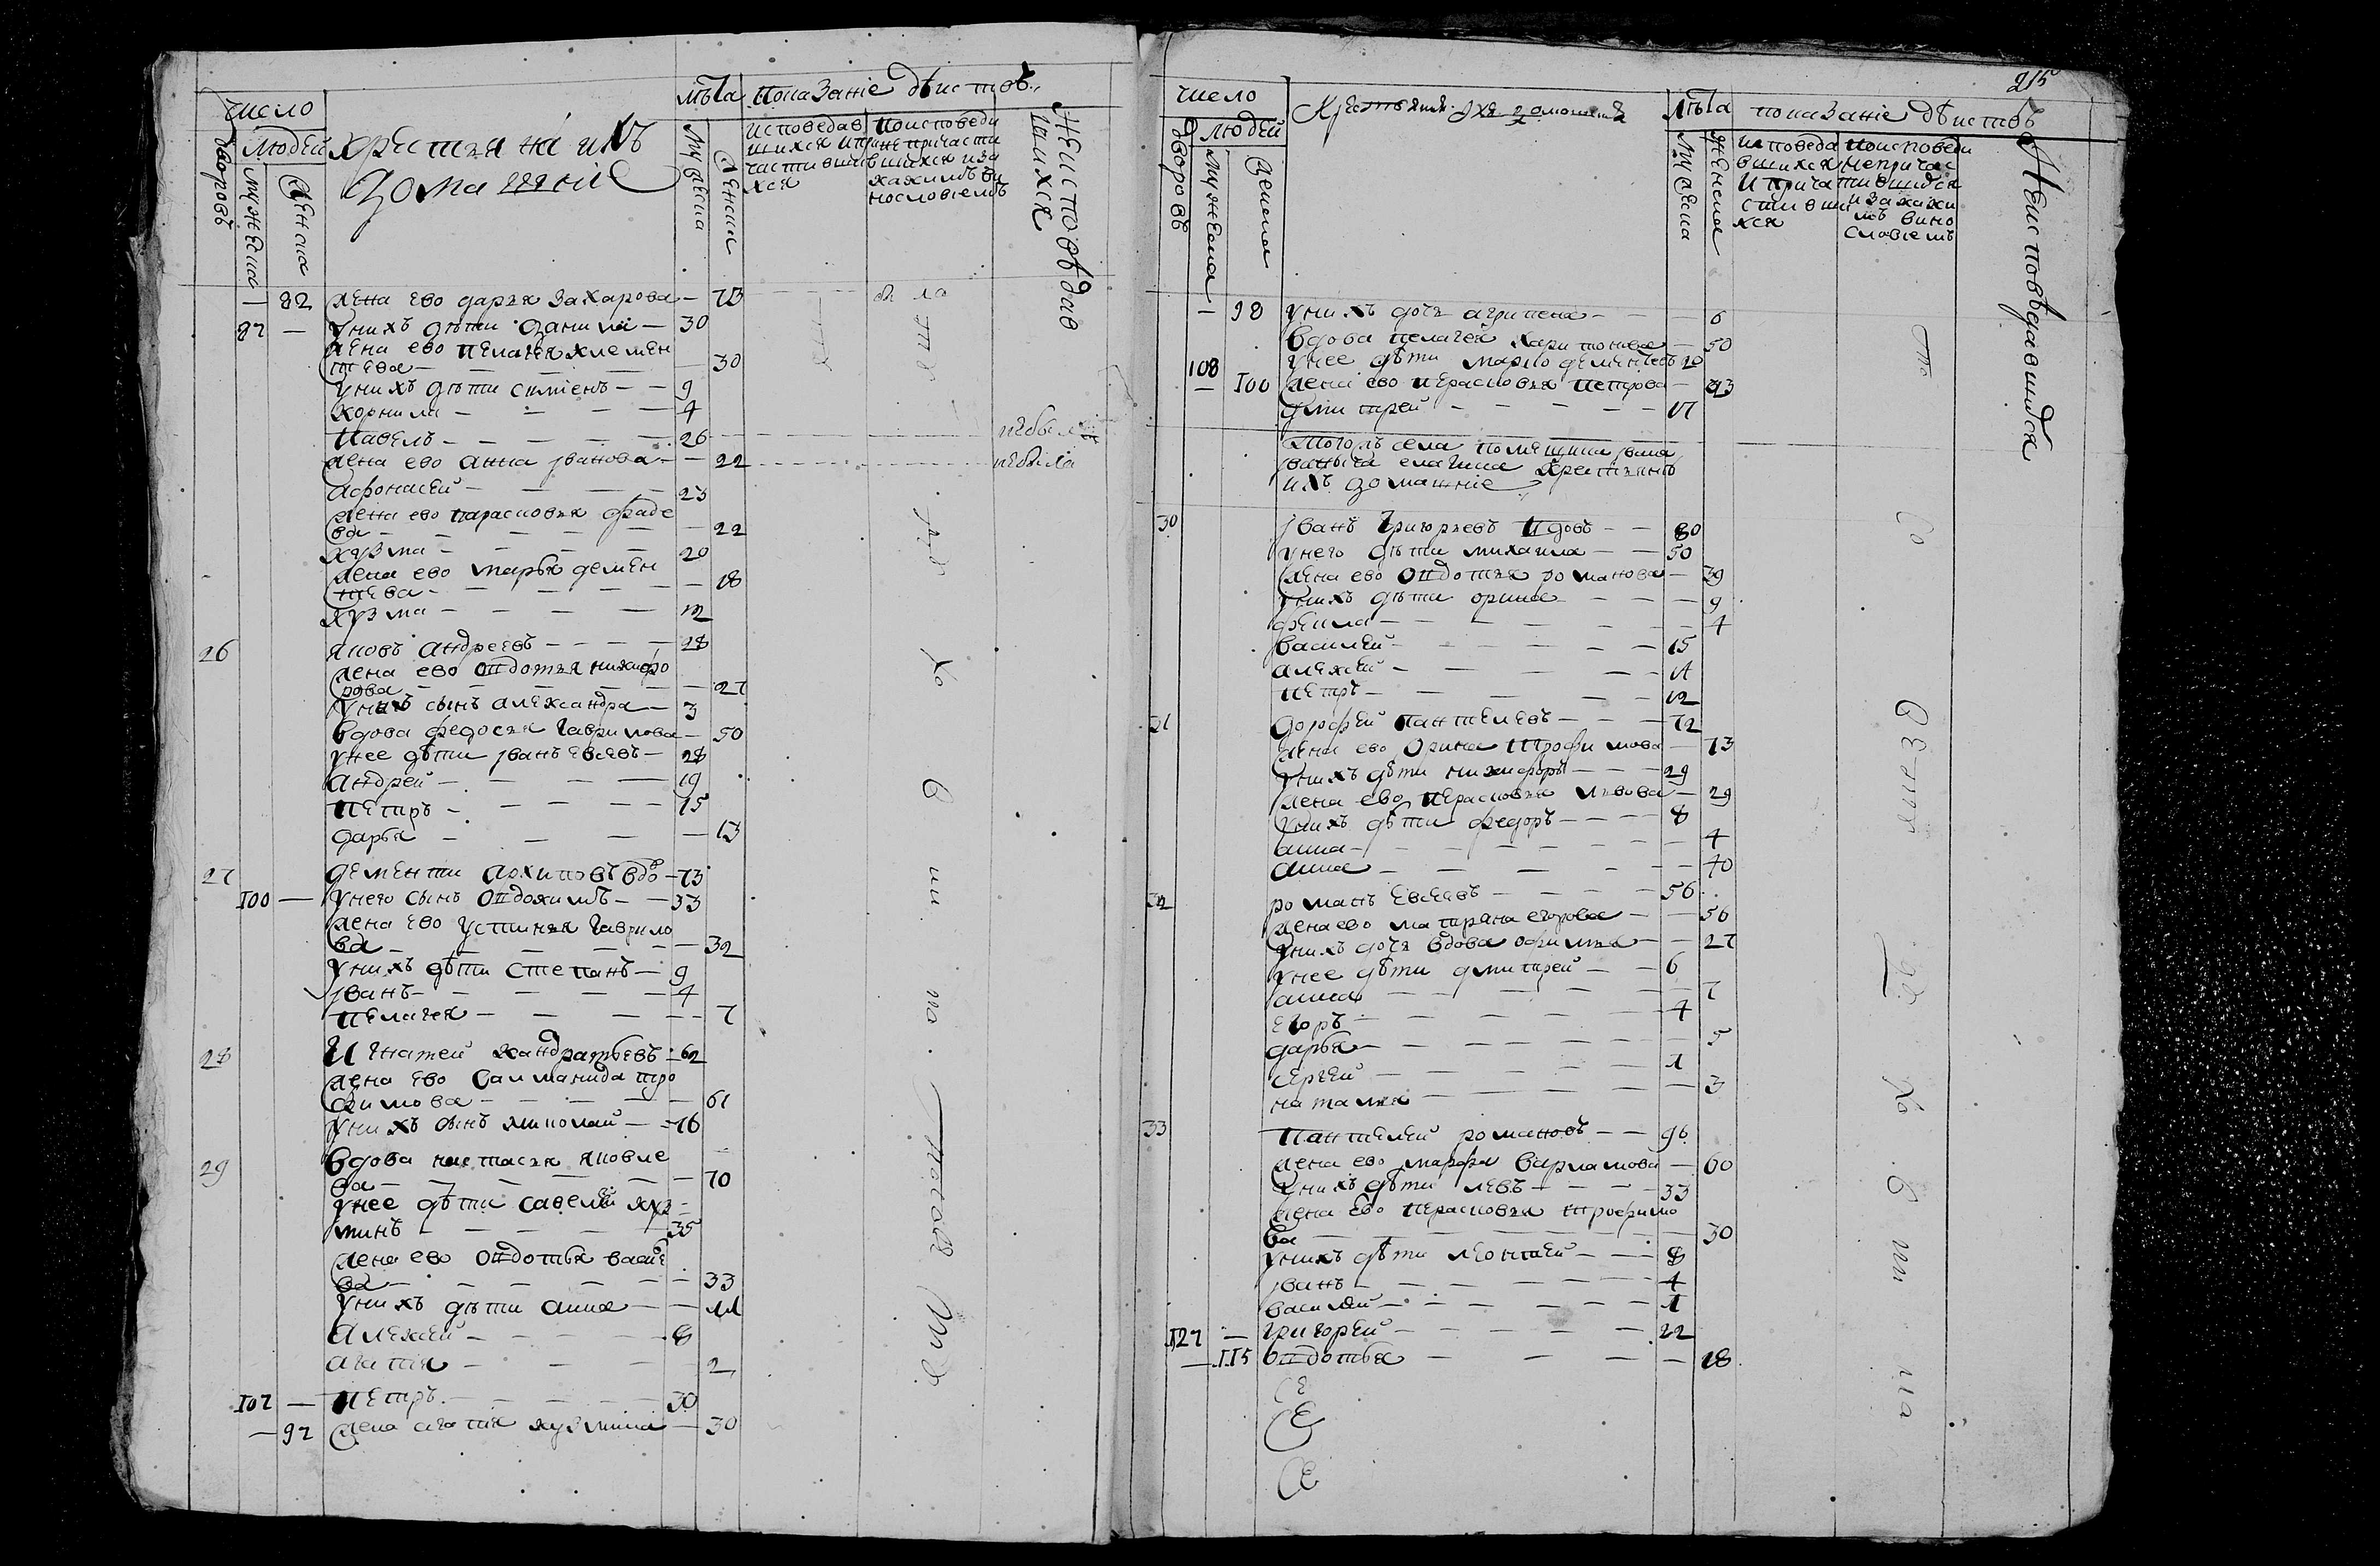 число
людей
дворовъ
мужеска
женска
християне ихъ
домашние
лѣта
мужеска
женски
показание дѣиствъ
исповедав
частивши
хся
поисповеди
непричасти
вшихся
неисповѣдав
шихся
82 жена ево даръя захарова 73 была
87 у нихъ дѣти данила 30
жена ево пелагея клемен
тева 30
у нихъ дѣти симіенъ 9
корнила 4
павелъ 26 небылъ
жена ево анна іванова 22 небыла
афонасей 23
жена ево парасковья фаде
ва 22
кузма 20
жена ево марья демен
тева 18
кузма 12
26 яковъ андреевъ 28
жена ево овдотья никифо
рова 27
у нихъ сынъ александра 3
вдова федосья гаврилова 50
у нее дѣти іванъ евсевъ 28
андрей 19
петръ 15
даръя 13
27 дементи архиповъ вдо 73
100 у него сынъ овдокимъ 33
жена ево устинья гаврило
ва 32
у нихъ дѣти степанъ 9
іванъ 4
пелагея 7
28 игнатей кандратьевъ 62
жена ево саламанида тро
фимова 61
у нихъ сынъ николай 16
29 вдова настасья яковле
ва 70
у нее дѣти савелей куз
минъ 35
жена ево овдотья василе
ва 33
у нихъ дѣти анна 11
алексей 8
агатья 2
107 петръ 30
97 жена агатья кузмина 30
215
число
людей
дворовъ
мужеска
женска
крестьяня ихъ домашния
лѣта
мужеска
женска
показание дѣиствъ
исповеда
вшихся
и прича
стивши
хся
поисповеди
непричас
тившихся
за каки
мъ вино
словіемъ
неисповѣдавшихся
98 у нихъ дочь агрипена 6
вдова пелагея харитонова 50
108 у нее дѣти марко дементевъ 20
100 жена ево перасковья петрова 23
дмитрей 17
тогожъ села помещика івана
іваныча елагина крестьяне
ихъ домашние
30 іванъ григорьевъ вдовъ 80
у него дѣти михаила 50
жена ево овдотья романова 39
у нихъ дѣти орина 9
фекла 4
василей 15
алексей 14
петръ 12
31 дорофей пантелевъ 72
жена ево орина трофимова 73
у нихъ дѣти никифоръ 29
жена ево перасковья львова 29
у нихъ дѣти федоръ 8
анна 4
анна 40
32 романъ евсеевъ 56
жена ево матрена егорова 56
у нихъ дочь вдова офимья 27
у нее дѣти дмитрей 6
анна 7
егоръ 4
даръя 5
сергей 1
наталья 3
33 пантелей романовъ 96
жена ево марфа варламова 60
у нихъ дѣти левъ 33
жена ево перасковья трофимо
ва 30
у нихъ дѣти леонтей 8
іванъ 4
василей 1
127 григорей 22
115 овдотья 18